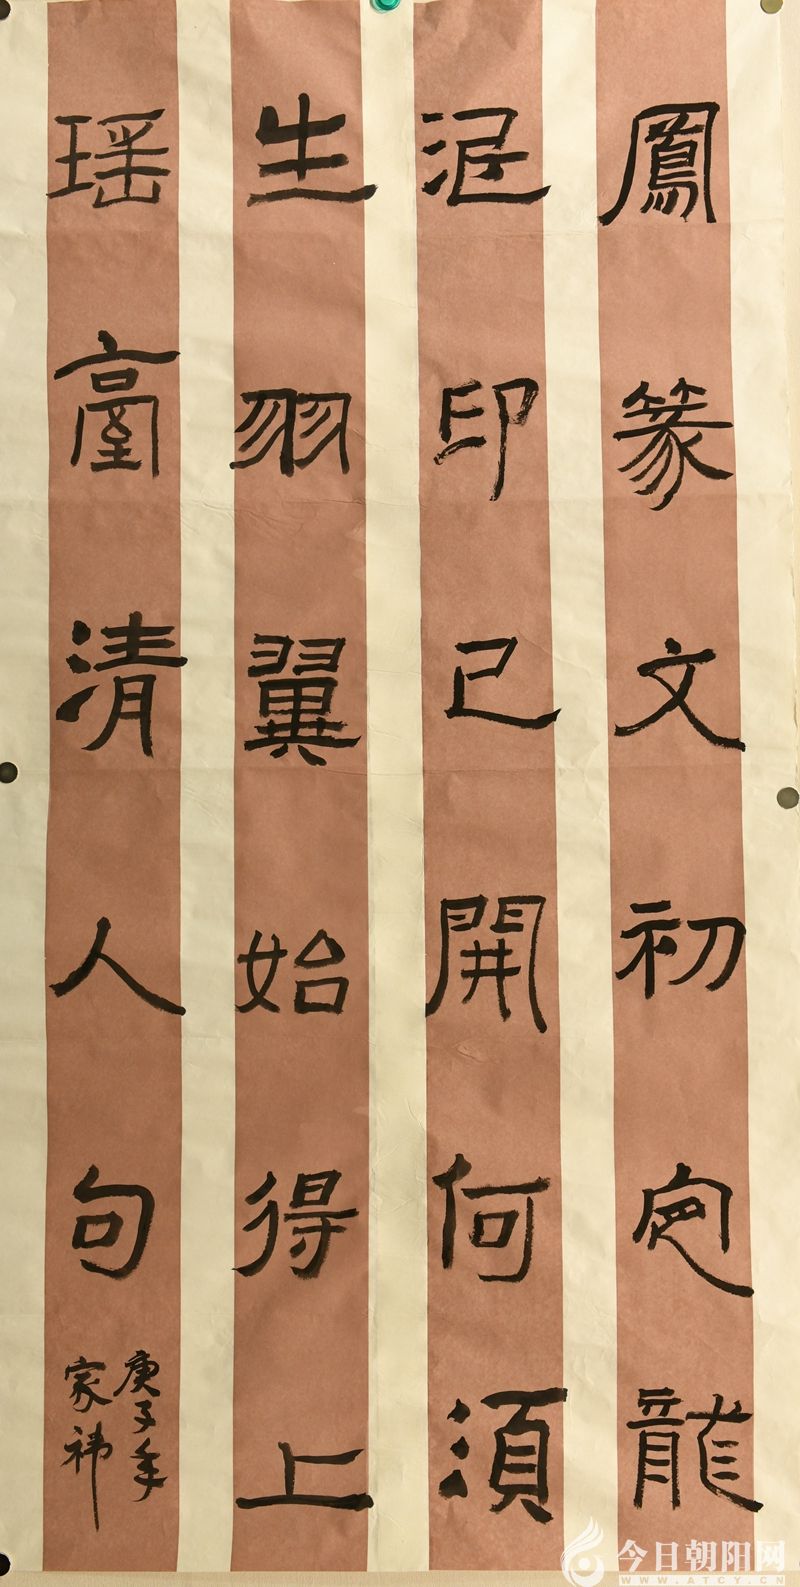 鳳篆文初定龍
泥印已開何湏
生羽翼始得上
瑶臺清人句
庚子年
家祎
今日朝阳网
WWW.ATCY.CN